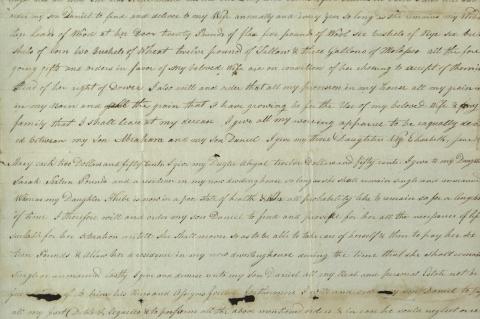 my son Daniel to find and deliver to my Wife annually and every year so long as she remains my Widow
ten loads of Wood at her Door twenty Pounds of flax five pounds of Wool Six bushels of Rye six bu
shels of Corn two bushels of Wheat twelve pound of Tallow & three Gallons of Molases all the fore
going gifts and orders in favor of my beloved Wife are on condition of her chosing to accept of them in
stead of her right of Dower I also will and order that all my provision in my house all my grain
in my Barn and all the grain that I have growing be for the Use of my beloved Wife &
family that I shall leave at my decease I give all my wearing apparel to be equally de
ed between my Son Abraham and my Son Daniel I give my three Daughters Elizabeth, Jane
Mary each two Dollars and fifty Cents I give my Daughter Abigal twelve Dollars and fifty cents I give to my Daughter
Sarah Pounds and a residence in my now dwelling house so long as she shall remain single and unmarried
Whereas my Daughter Phebe is now in a poor state of health & in all probability like to remain so for a length
of time I therefore will and order my son Daniel to find and provide for her all the necessaries of life
suitable for her situation untill she shall recover so as to be able to take care of herself & then to pay her
Pounds & allow her a residence in my now dwelling house during the time that she shall remain
Single or unmarried Lastly I give and devise unto my Son Daniel all my Real and personal Estate not be
to him his heirs and Assigns forever I will and order my son Daniel to pay
all my just Debts & Legacies & to perform all the above mentioned orders & in case he would neglect or